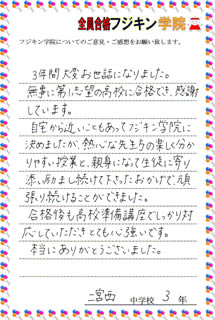 全員合格フジキン学院
フジキン学院についてのご意見・ご感想をお願い致します。
3年間大変お世話になりました。
無事に第1志望の高校に合格でき、感謝
しています。
自宅から近いこともあってフジキン学院に
決めましたが、熱心な先生方の楽しく分か
りやすい授業と、親身になって生徒に寄り
添い励まし続けて下さったおかげで、頑
張り続けることができました。
合格後も高校準備講座でしっかり対
応していただきとても心強いです。
本当にありがとうございました。
二宮西 中学校 3 年